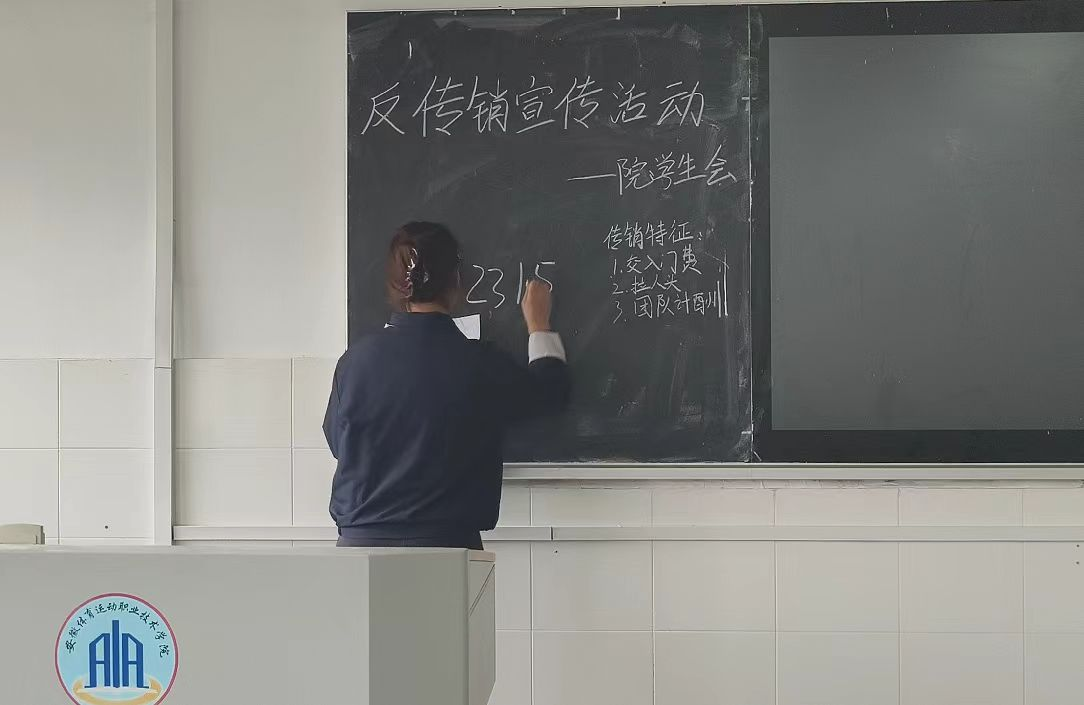 反传销宣传活动
—院学生会
传销特征:
1.交入门费
2.拉人头
3.团队计酬
2315
安徽体育运动职业技术学院